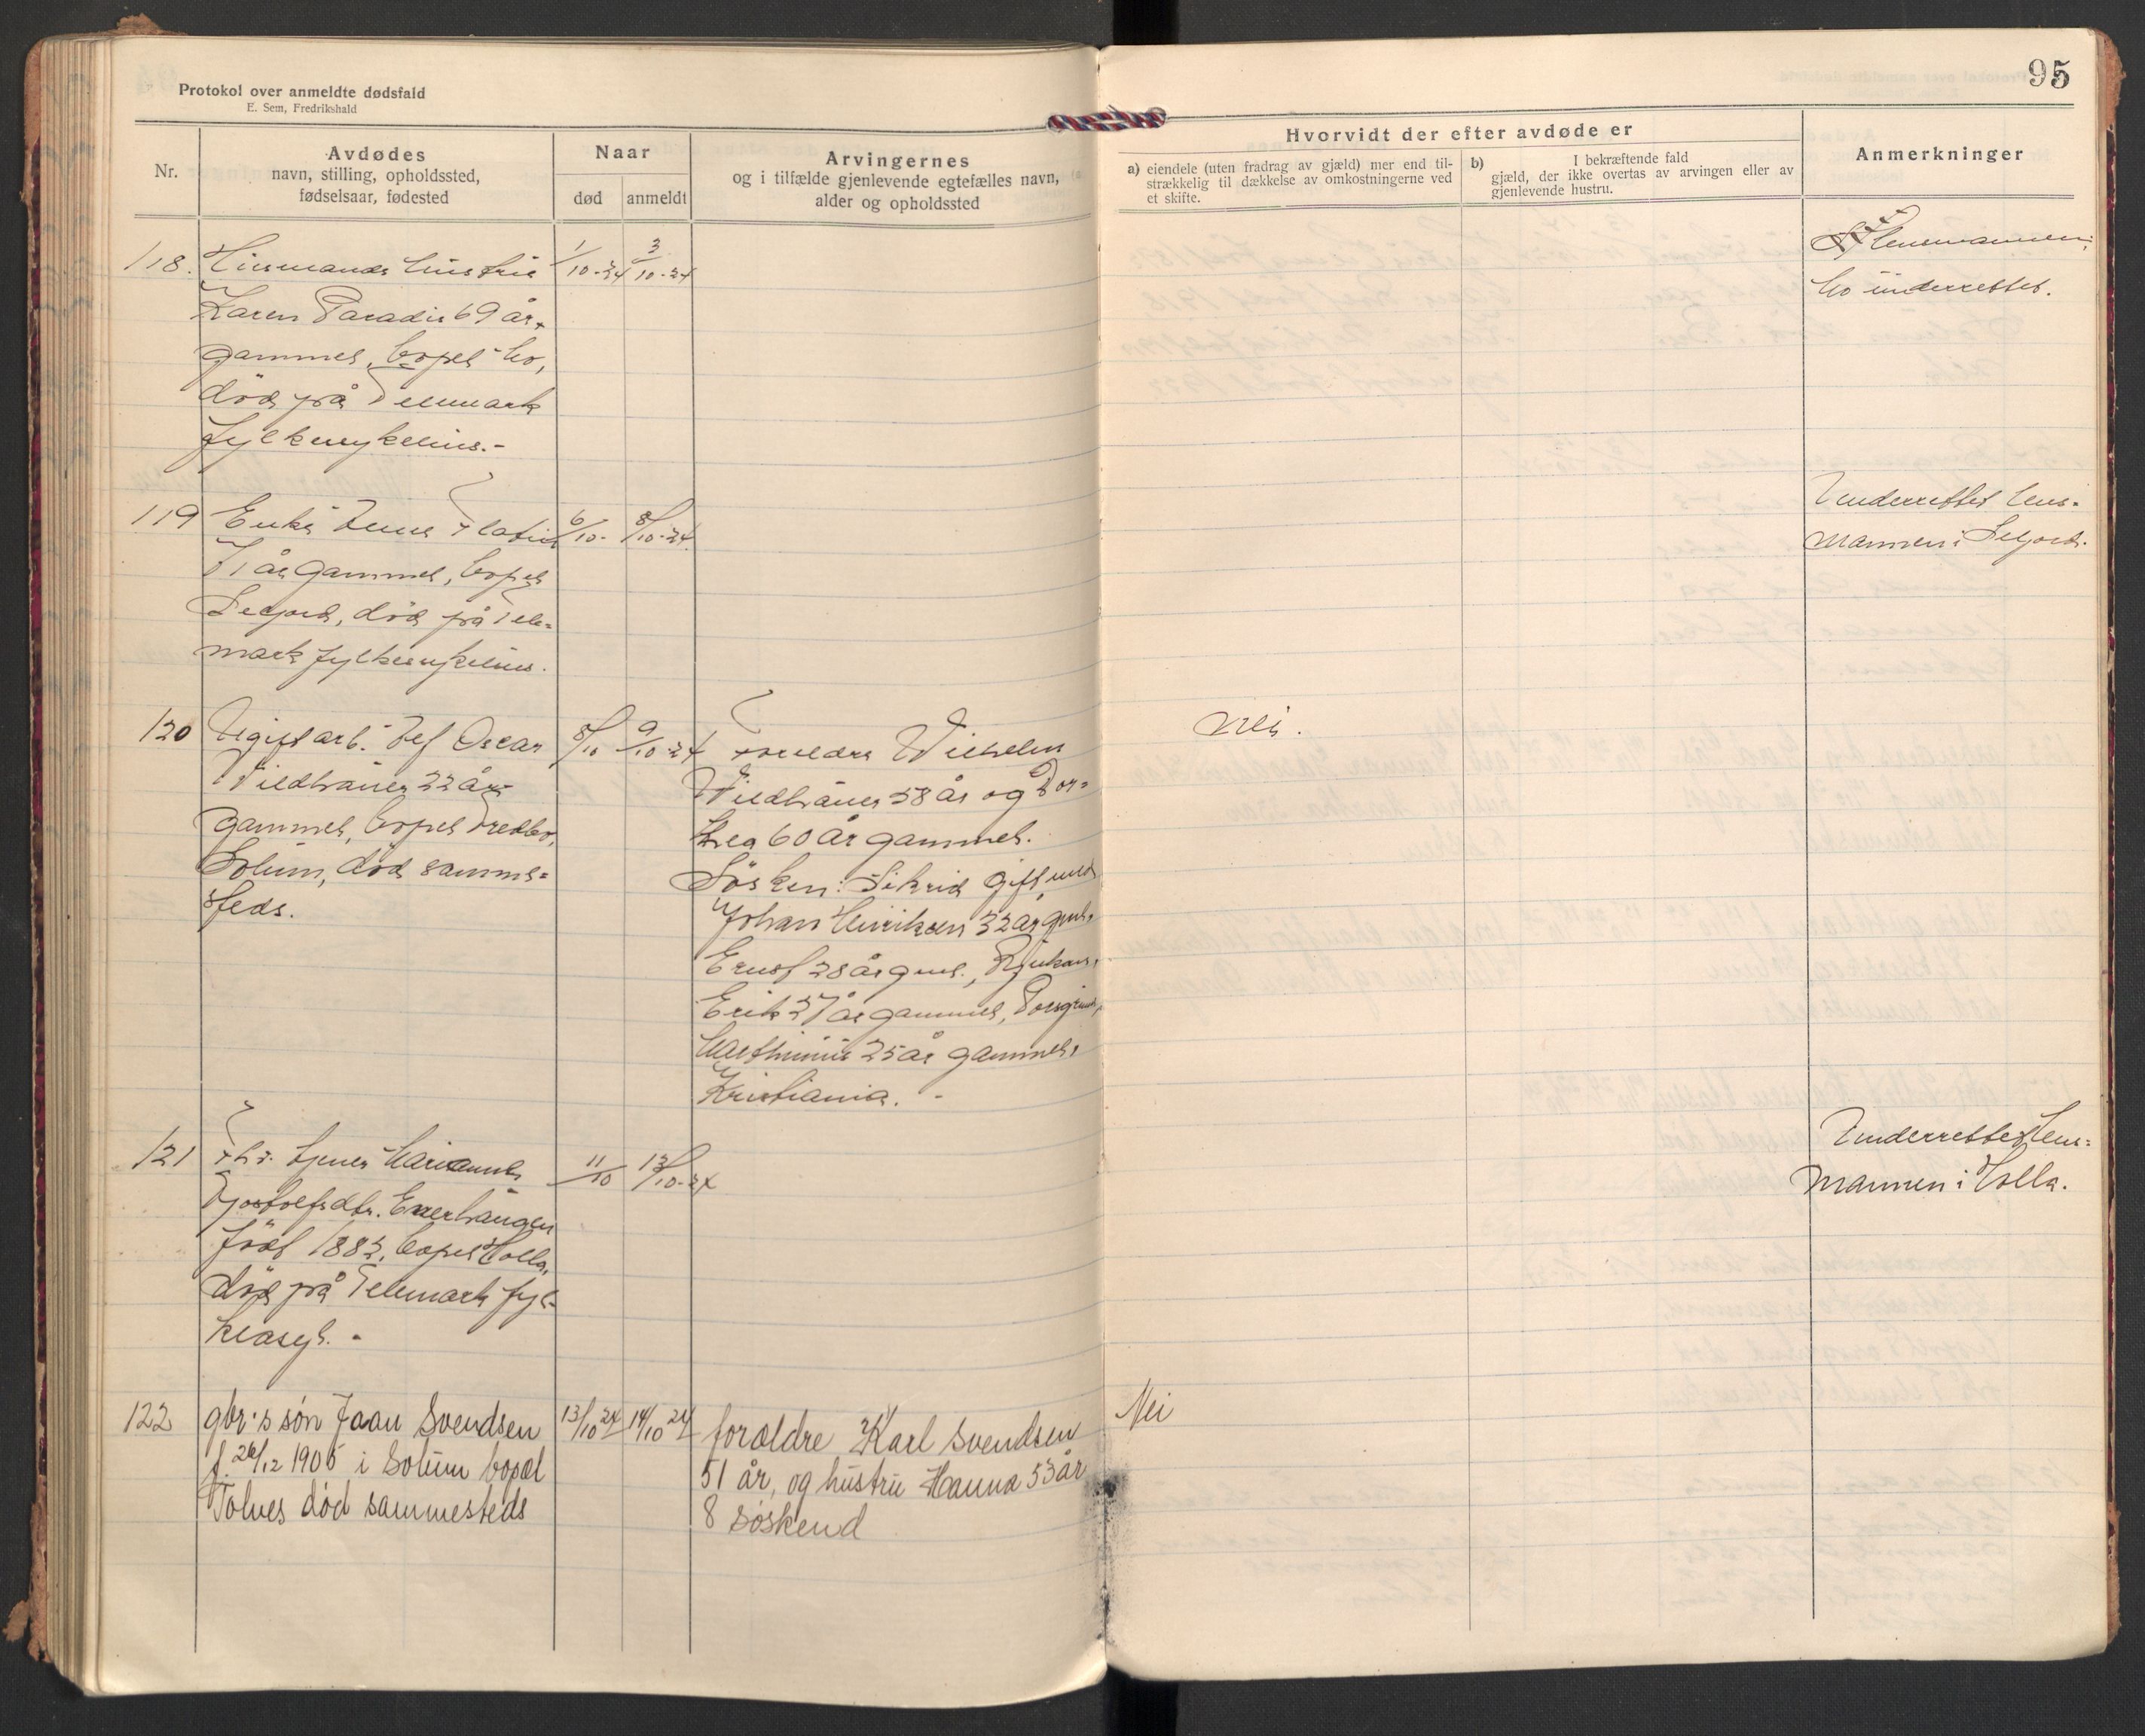 Protokol over anmeldte dødsfald
E. Sem, Fredrikshald
95
Nr.
Avdødes
navn, stilling, opholdssted,
fødselsaar, fødested
Naar
død
anmeldt
Arvingernes
og i tilfælde gjenlevende egtefælles navn,
alder og opholdssted
Hvorvidt der efter avdøde er
a) eiendele (uten fradrag av gjæld) mer end til-
strækkelig til dækkelse av omkostningerne ved
et skifte.
b) I bekræftende fald
gjæld, der ikke overtas av arvingen eller av
gjenlevende hustru.
Anmerkninger
118. Husmands hustru 1/10-24 3/10-24
Karen Paradis 69 år
gammel, bopel Bø,
død på Telemark
fylkesykehus.-
Lensmannen i
Bø underrettet.
119 Enke Anne Flatin 6/10- 8/10-24
71 år gammel, bopel
Seljord, død på Tele=
mark fylkesykehus.
Underrettet lens=
mannen i Seljord.
120 Ugift arb. Leif Oscar 8/10 9/10-24
Vildhauer 22 år
gammel, bopel Vredbo,
Solum, død samme=
steds.
Foreldre Wilhelm
Vildhauer 58 år og Dor=
thea 60 år gammel.
Søsken: Sikrid gift med
Johan Henriksen 32 år gml,
Ernst 28 år gml., Rjukan,
Erik 27 år gammel, Porsgrund,
Marthinius 25 år gammel,
Kristiania. -
Nei.
121 Fhv. tjener Marianne 11/10 13/10-24
Gjostolfsdtr. Enerhaugen
født 1883, bopel Holla,
død på Telemark fyl=
kessyk. -
Underrettet lens=
mannen i Holla.
122 gbr's søn Jaan Svendsen 13/10 24 14/10 24
f. 26/12 1905 i Solum bopæl
Tolnes død sammesteds
forældre Karl Svendsen
51 år, og hustru Hanna 53 år
8 søskend
Nei